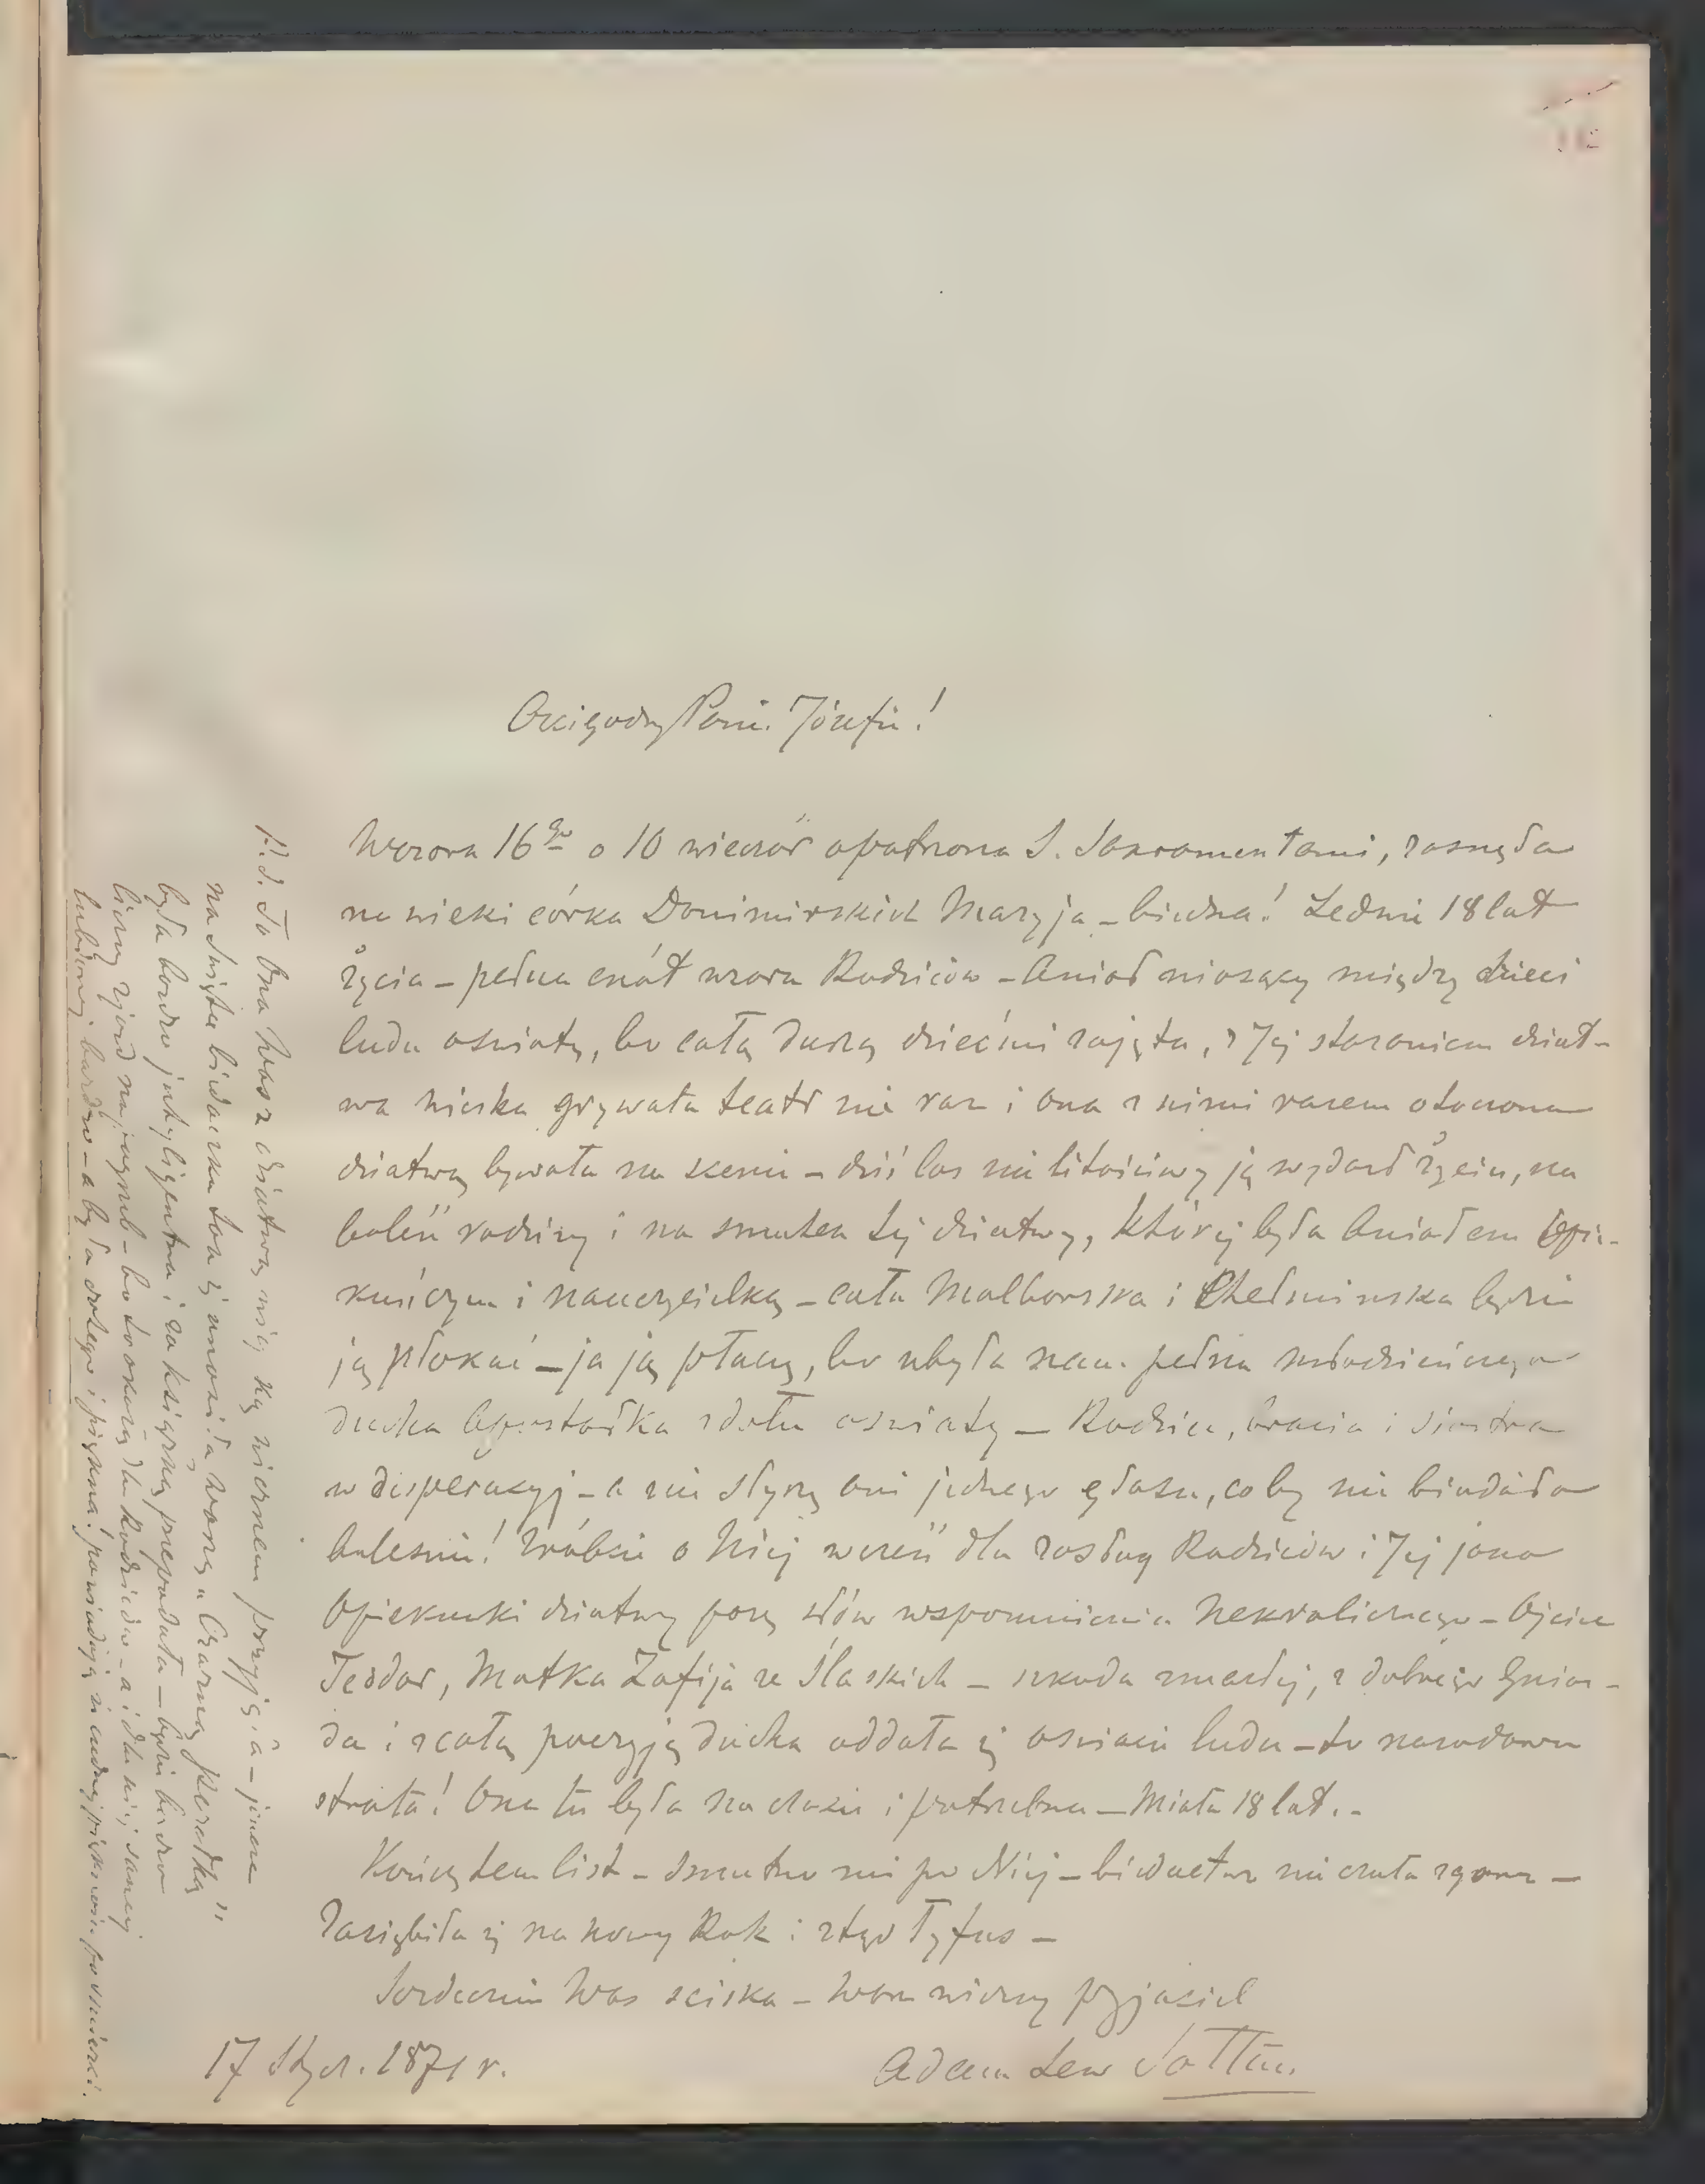 Czcigodny Panie Józefie!
Wczora 16go o 10 wieczór opatrzona S. Sakramentami, zasnęła
na wieki córka Donimirskich Maryja – biedna! Ledwie 18 lat
życia – pełna cnót wzoru Rodziców – Anioł niosący między dzieci
ludu oświatę, bo całą duszą dziećmi zajęta, z Jej staraniem dziat-
wa wiejska grywała teatr nie raz i Ona z nimi razem otoczona
dziatwą bywała na scenie – dziś los nielitościwy ją wydarł życiu, na
boleść rodziny i na smutek tej dziatwy, której była Aniołem Opie-
kuńczym i nauczycielką – cała Malborska i Chełmińska będzie
ją płakać – ja ją płaczę, bo ubyła nam pełna młodzieńczego
ducha Apostołka oświaty – Rodzice, bracia i siostra
w disperacyj – a nie słyszę ani jednego głosu, coby nie biadał
boleśnie! Zróbcie o Niej wcześ dla zasług Rodziców i Jej jako
Opiekunki dziatwy parę słów wspomnienia nekrologicznego – Ojciec
Teodor, Matka Zofija ze Ślaskich – szkoda zmarłej, z dobrego Gniaz-
da i z całą poezyją ducha oddała się oświacie ludu – to narodowa
strata! Ona tu była na czasie i potrzebna – Miała 18 lat. –
Kończę tem list – smutno mi po Niej – biedactwo nie czuła zgonu –
Zaziębiła się na nowy Rok i z tego Tyfus –
Serdecznie Was ściska – Wam wierny przyjaciel
17 Stycz. 1871 r.
Adam Lew Sołtan.
P.S. To Ona Wasz dziatwą wiejską wiernem przyjęciem
na święta biedaczka tak się unosiła Waszą „Czarną Perełką”
była bardzo intyligentna i za książką przepadała – będzie bardzo
liczny zjazd na pogrzeb – bo to okażą dla Rodziców – a i dla niej samej
lubionej bardzo – a była dobrego i piękna! powiadają